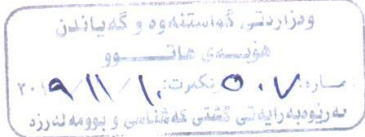 وەزارەتی گواستنەوە و گەیاندن
هۆبەی هاتوو
ژمارە: ٥٠٧ ڕێکەوت: ١٠ / ١١ / ٢٠١٩
بەڕێوەبەرایەتی گشتی کەشناسی و بوومەلەرزە